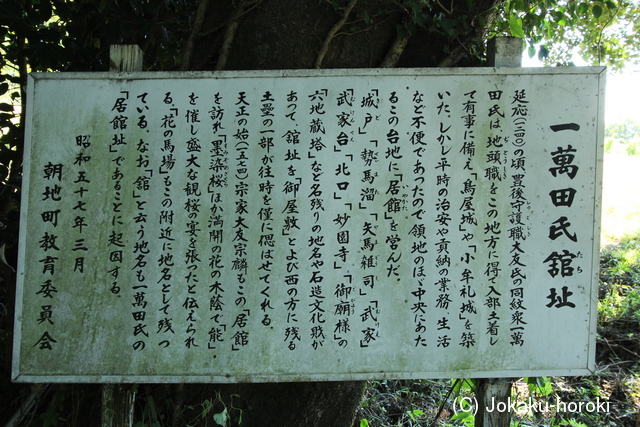 一萬田氏舘址
延応(一二四〇)の頃、豊後守護職大友氏の同紋衆一萬
田氏は、地頭職をこの地方に得て入部土着し
て有事に備え「鳥屋城」や「小牟礼城」を築
いた。しかし平時の治安や貢納の業務、生活
など不便であったので領地のほゞ中央にあた
るこの台地に「居館」を営んだ。
「城戸」「勢馬溜」「矢馬雑司」「武家」
「武家台」「北口」「妙圓寺」「御廟様」の
「六地蔵塔」など名残りの地名や石造文化財が
あって、舘址を御屋敷とよび西の方に残る
土塁の一部が往時を僅に偲ばせてくれる。
天正の始(一五七四)宗家大友宗麟もこの「居館」
を訪れ「墨染桜」ほか満開の花の木蔭で「能」
を催し盛大な観桜の宴を張ったと伝えられ
る。「花の馬場」もこの附近に地名として残っ
ている。なお「舘」と云う地名も一萬田氏の
「居館址」であることに起因する。
昭和五十七年三月
朝地町教育委員会
(C)Jokaku-horoki